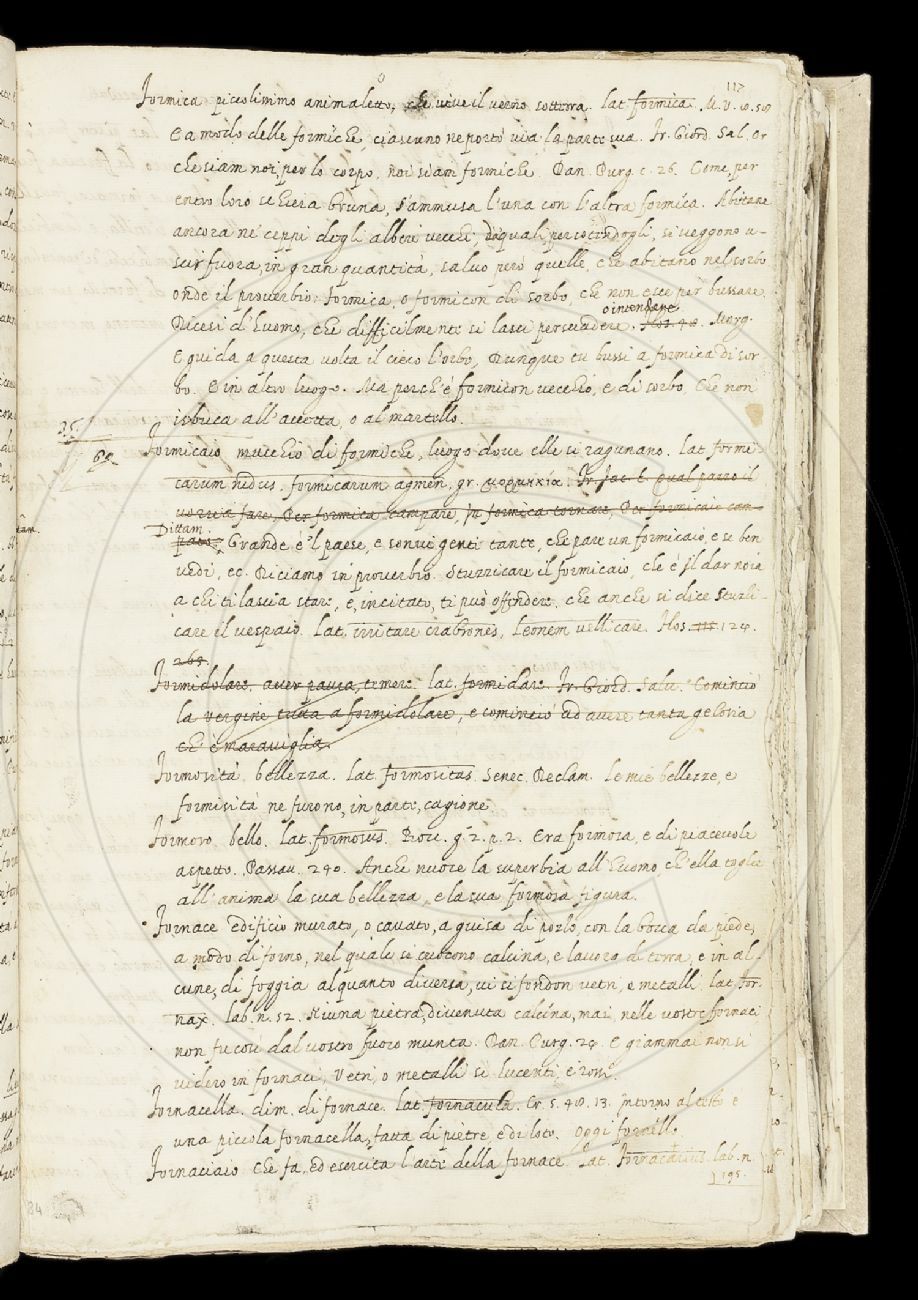 117
Formica piccolissimo animaletto, che vive il verno sotterra. lat. formica. M. V. 10. 59
E a modo delle formiche, ciascuno ne portò via la parte sua. Fr. Giord. Sal. or
che siam noi, per lo corpo, noi siam formiche. Dan. Purg. c. 26. Come per
entro loro schiera bruna, s'ammusa l'una con l'altra formica. Abitane
ancora ne' ceppi degli alberi vecchi, de quali percotendogli, si veggono u-
scir fuora, in gran quantità, salvo però quelle, che abitano nel sorbo
onde il proverbio: formica, o formicon di sorbo, che non esce per bussare.
o intendere
Dicesi d'huomo, che difficilmente si lasci persuadere. Flos. 48. Morg.
E guida a questa volta il cieco l'orbo, Dunque tu bussi a formica di sor
bo. E in altro luogo. Ma perch'è formicon vecchio, e di sorbo, Che non
isbuca all'accetta, o al martello.
25
69
Formicaio mucchio di formiche, luogo dove elle si ragunano. Lat. formi-
carum nidus. formicarum agmen, gr. μυρμηκία. Fr. Jac. t. Qual porco il
vorria fare, Per formica campare, In formica tornare, Per formicaio cam-
Dittam.
pato. Grande è 'l paese, e sonvi genti tante, che pare un formicaio, e se ben
vedi, ec. Diciamo in proverbio. Stuzzicare il formicaio, che è il dar noia
a chi ti lascia stare, e, incitato, ti può offendere. che anche si dice Stuzzi-
care il vespaio. Lat. irritare crabrones, Leonem vellicare. Flos. 124.
269.
Formidolare, aver paura, temere. lat. formidare. Fr. Giord. Salv. Cominciò
la vergine tutta a formidolare, e cominciò ad avere tanta gelosia
ch' è maraviglia.
Formosità. bellezza. Lat. formositas. Senec. Declam. Le mie bellezze, e
formisità ne furono, in parte, cagione
Formoso. bello. Lat. formosus. Bocc. g. 2. p. 2. Era formosa, e di piacevole
aspetto. Passav. 240. Anche nuoce la superbia all'huomo, ch'ella toglie
all'anima la sua bellezza, e la sua formosa figura.
Fornace edificio murato, o cavato, a guisa di pozzo, con la bocca da piede,
a modo di forno, nel quale si cuocono calcina, e lavoro di terra, e in al-
cune, di foggia alquanto diversa, vi si fondon vetri, e metalli. lat. for-
nax. lab. n. 52. Niuna pietra, divenuta calcina, mai nelle vostre fornaci
non fu così dal vostro fuoco munta. Dan. Purg. 24. E giammai non si
videro in fornace, Vetri, o metalli si lucenti, e rossi.
Fornacella. dim. di fornace. Lat. fornacula. Cr. 5. 48. 13. Intorno al testo è
una piccola fornacella, fatta di pietre, e di loto. oggi fornello
Fornaciaio Che fa, ed esercita l'arte della fornace Lat. fornacarius lab. n.
195.
84